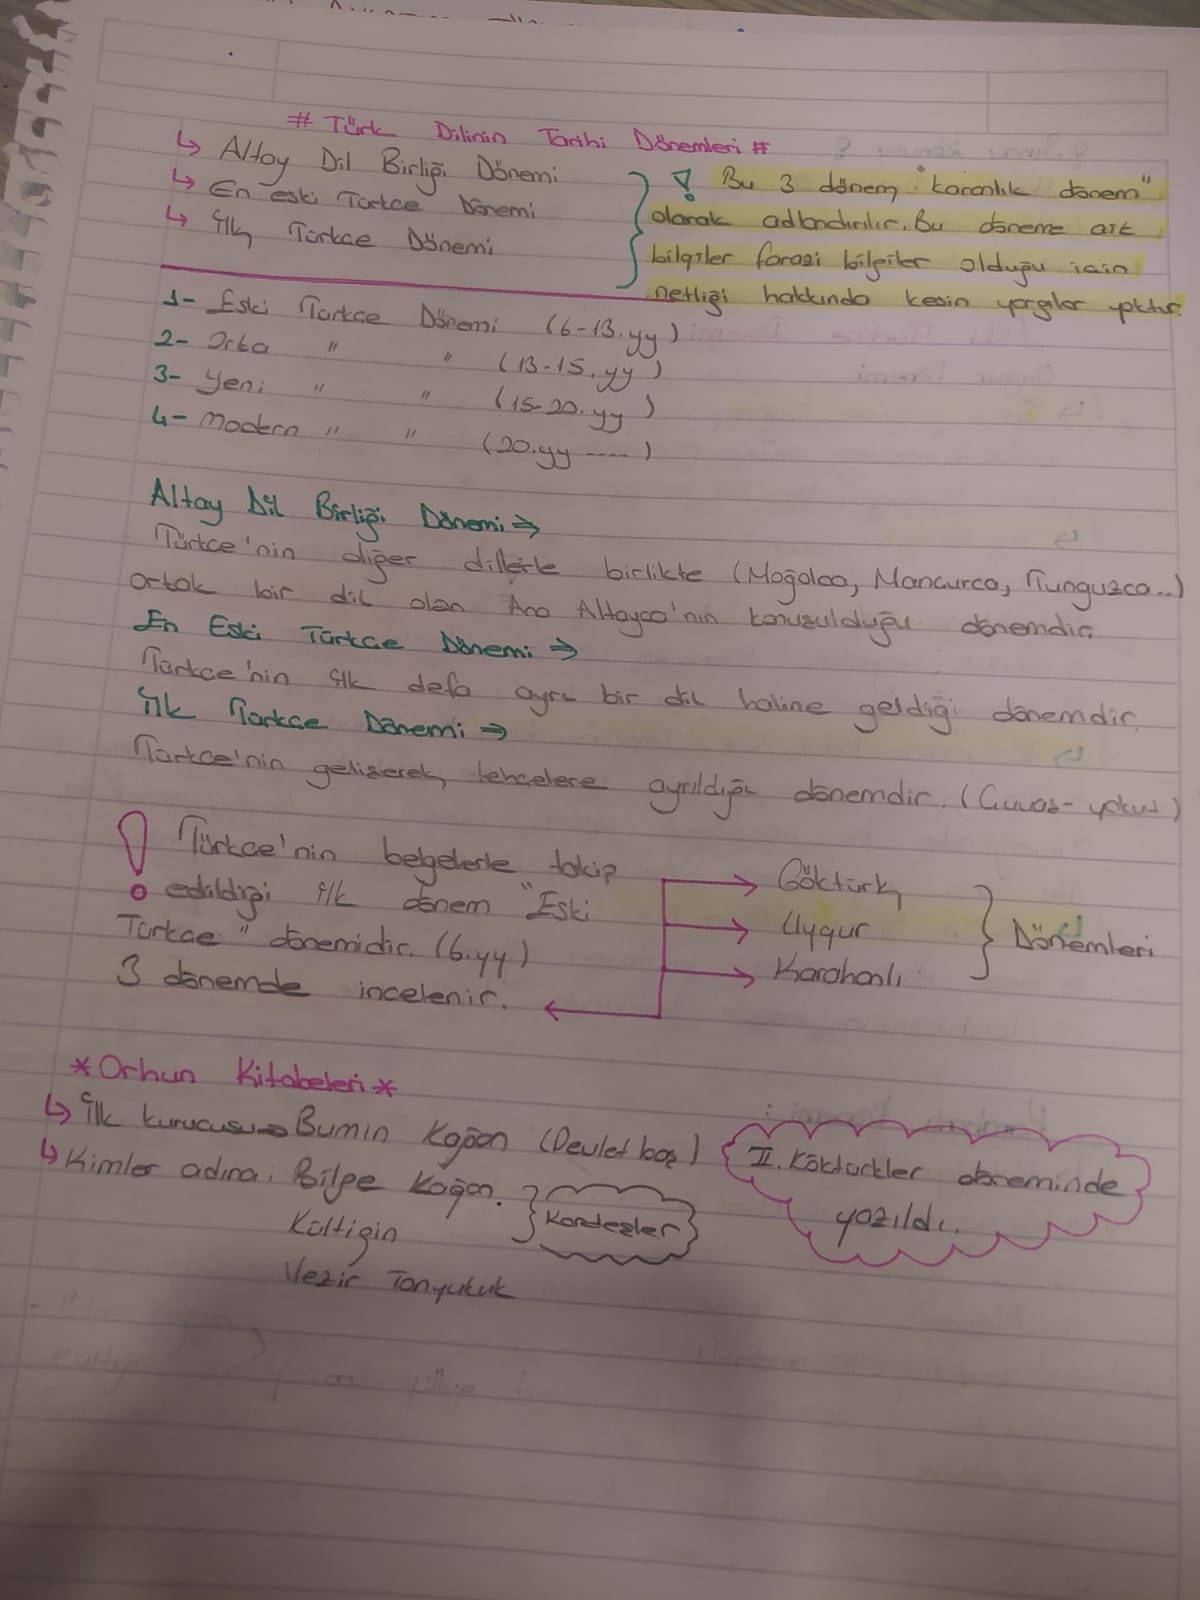 # Türk Dilinin Tarihi Dönemleri #
↳ Altay Dil Birliği Dönemi
↳ En Eski Türkçe Dönemi
↳ İlk Türkçe Dönemi
! Bu 3 dönem "karanlık dönem"
olarak adlandırılır. Bu döneme ait
bilgiler farazi bilgiler olduğu için
netliği hakkında kesin yargılar yoktur.
1- Eski Türkçe Dönemi (6-13.yy)
2- Orta " " (13-15.yy)
3- Yeni " " (15-20.yy)
4- Modern " " (20.yy ----)
Altay Dil Birliği Dönemi ⇒
Türkçe'nin diğer dillerle birlikte (Moğolca, Mançurca, Tunguzca..)
ortak bir dil olan Ana Altayca'nın konuşulduğu dönemdir.
En Eski Türkçe Dönemi ⇒
Türkçe'nin ilk defa ayrı bir dil haline geldiği dönemdir.
İlk Türkçe Dönemi ⇒
Türkçe'nin gelişerek, lehçelere ayrıldığı dönemdir. (Çuvaş- yakut)
! Türkçe'nin belgelerle takip
edildiği ilk dönem "Eski
Türkçe" dönemidir. (6.yy)
3 dönemde incelenir.
→ Göktürk
→ Uygur
→ Karahanlı
} Dönemleri
*Orhun Kitabeleri*
↳ İlk kurucusu → Bumin Kağan (Devlet baş)
↳ Kimler adına: Bilge Kağan.
Kültigin
Vezir Tonyukuk
} Kardeşler
II. Köktürkler döneminde
yazıldı.